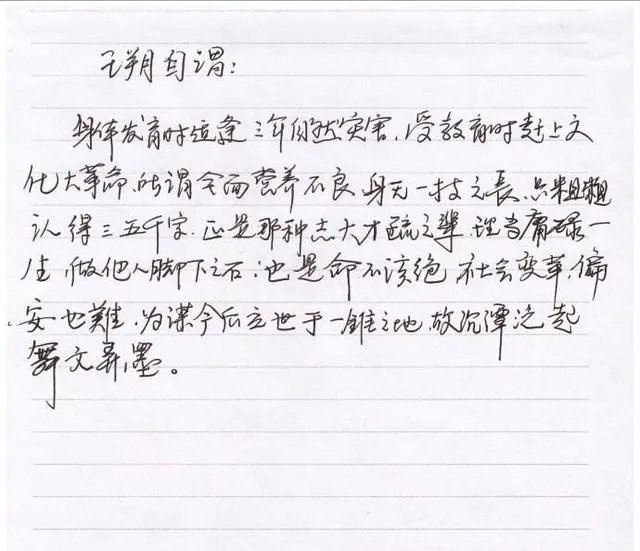 王朔自谓：
身体发育时适逢三年自然灾害，受教育时赶上文
化大革命，所谓全面营养不良。身无一技之長，只粗粗
认得三五千字。正是那种志大才疏之辈，理当庸碌一
生，做他人脚下之石；也是命不该绝，社会变革，偏
安也難，为谋今后立世于一锥之地，故沉潭泛起
舞文弄墨。